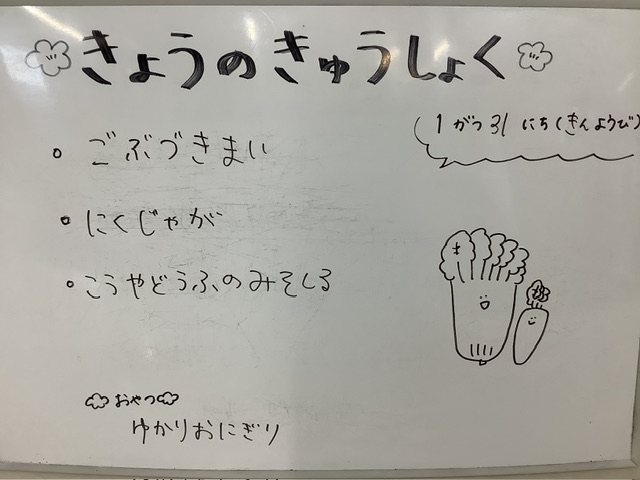 きょうのきゅうしょく
1がつ31にち(きんようび)
。ごぶづきまい
。にくじゃが
。こうやどうふのみそしる
おやつ
ゆかりおにぎり